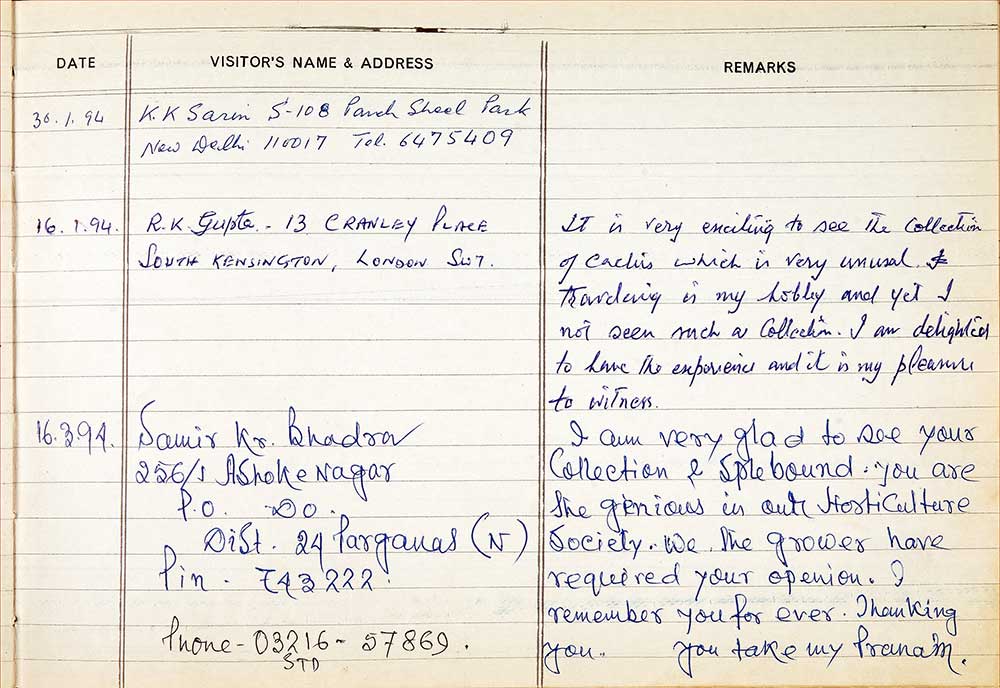 DATE VISITOR'S NAME & ADDRESS REMARKS
30.1.94 K.K Sarin S-108 Panch Sheel Park
New Delhi 110017 Tel. 6475409
16.1.94. R.K. Gupta - 13 CRANLEY PLACE
SOUTH KENSINGTON, LONDON SW7.
It is very exciting to see the Collection
of Cactus which is very unusual.
Travelling is my hobby and yet I
not seen such a Collection. I am delighted
to have the experience and it is my pleasure
to witness.
16.3.94. Samir Kr. Bhadra
256/1 Ashoke Nagar
P.O. Do.
Dist. 24 Parganas (N)
Pin - 743222.
Phone - 03216 - 57869.
STD
I am very glad to see your
Collection & Splebound. you are
the genious in our Horticulture
Society. We, the grower have
required your openion. I
remember you for ever. Thanking
you. You take my Pranam.